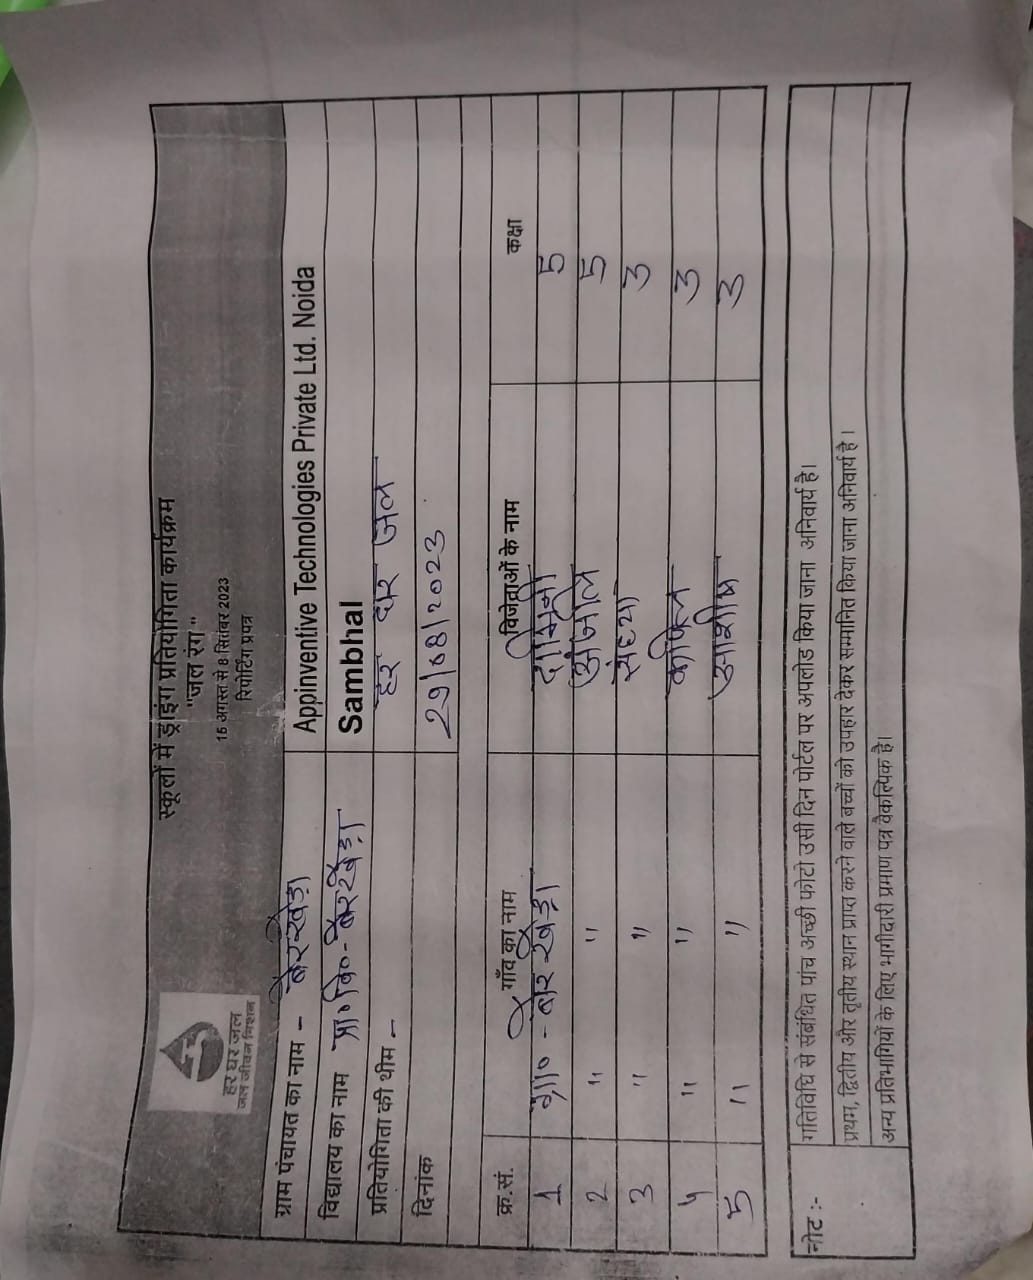 हर घर जल
जल जीवन मिशन
स्कूलों में ड्राइंग प्रतियोगिता कार्यक्रम
"जल रंग"
16 अगस्त से 8 सितंबर 2023
रिपोर्टिंग प्रपत्र
ग्राम पंचायत का नाम - बेरखेड़ा Appinventive Technologies Private Ltd. Noida
विद्यालय का नाम प्रा० वि०- बेरखेड़ा Sambhal
प्रतियोगिता की थीम - हर घर जल
दिनांक 29/08/2023
क्र.सं. गाँव का नाम विजेताओं के नाम कक्षा
1 ग्रा० - बेरखेड़ा दामिनी 5
2 " " अंजलि 5
3 " " संध्या 3
4 " " 3
5 " " आशीष 3
नोट :- गतिविधि से संबंधित पांच अच्छी फोटो उसी दिन पोर्टल पर अपलोड किया जाना अनिवार्य है।
प्रथम, द्वितीय और तृतीय स्थान प्राप्त करने वाले बच्चों को उपहार देकर सम्मानित किया जाना अनिवार्य है।
अन्य प्रतिभागियों के लिए भागीदारी प्रमाण पत्र वैकल्पिक है।